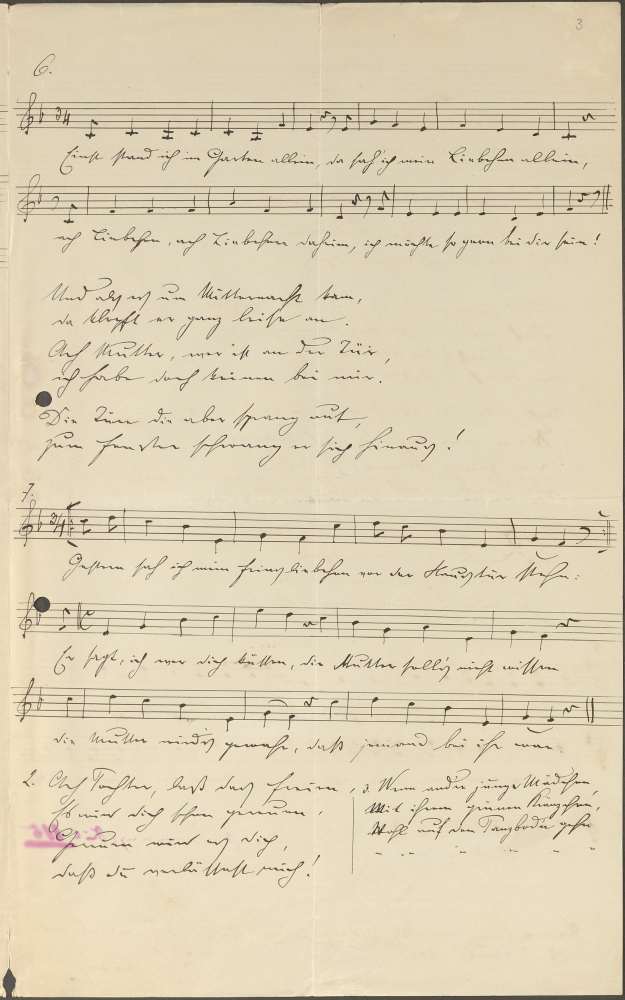 3
6.
Einst stand ich im Garten allein, da sah ich mein Liebchen allein,
ach Liebchen, ach Liebchen daheim, ich möchte so gern bei dir sein!
Und als es um Mitternacht kam,
da klopft er ganz leise an.
Ach Mutter, wer ist an der Tür,
ich habe doch keinen bei mir.
Die Türe die aber sprang auf,
zum Fenster schwang er sich hinaus!
7.
Gestern sah ich mein Feinsliebchen vor der Haustür stehn:
Er sagt, ich war dich küssen, die Mutter solls nicht wissen
die Mutter wirds gewahr, daß jemand bei ihr war.
2. Ach Tochter, laß das freien,
Es wird dich schon gereuen.
Gereuen wird es dich,
daß du verlässest mich!
3. Wenn andre junge Mädchen
Mit ihren grünen Kränzchen,
Wohl auf den Tanzboden gehn